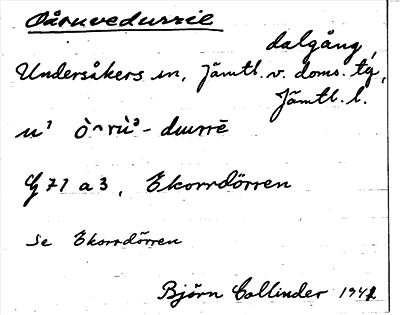 Oåruvedurrie
dalgång,
Undersåkers sn, Jämtl. v. doms. tg,
Jämtl. l.
Ekorrdörren
Se Ekorrdörren
Björn Collinder